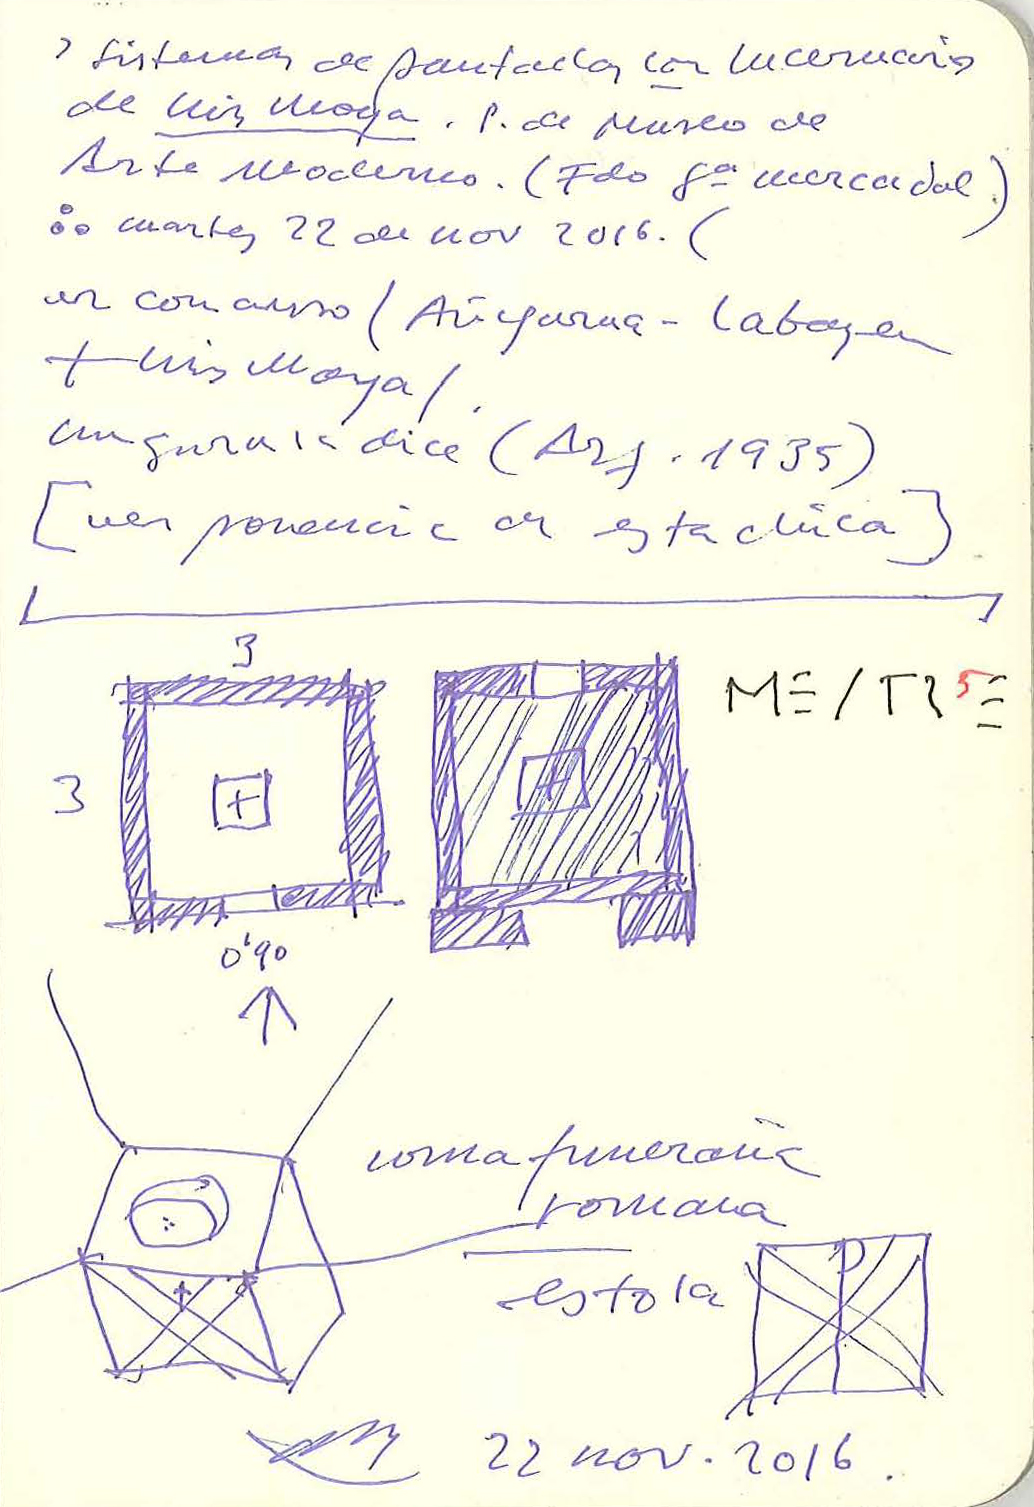 Sistemas de pantallas con lucernario
de Luis Moya. P. de Museo de
Arte Moderno. (Fdo Gª Mercadal)
martes 22 de nov 2016. (
en concurso (Aizpurua - Labayen
+ Luis Moya/.
dice (Arq. 1935)
[ver ponencia de esta chica]
3
3
ME/TR5E
0'90
funeraria
romana
estola
P
22 nov. 2016.